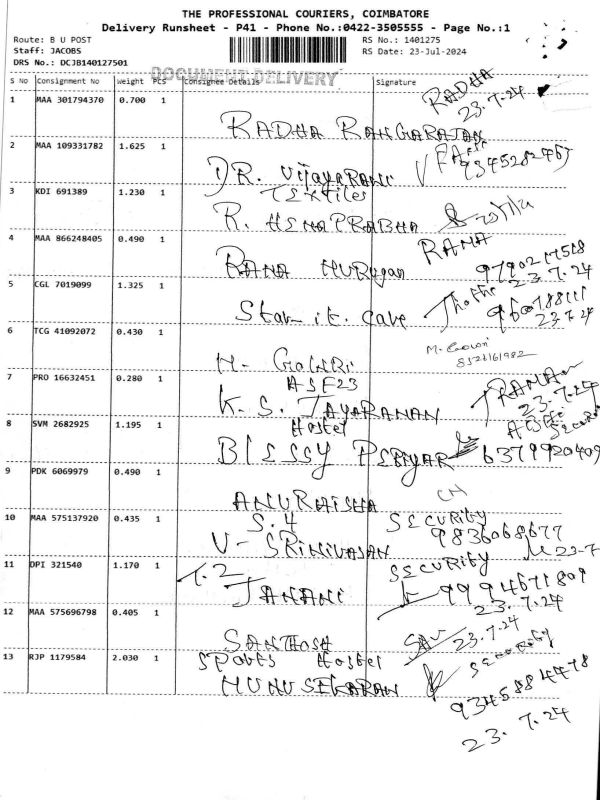 THE PROFESSIONAL COURIERS, COIMBATORE
Delivery Runsheet - P41 - Phone No.:0422-3505555 - Page No.:1
Route: B U POST
RS No.: 1401275
Staff: JACOBS
RS Date: 23-Jul-2024
DRS No.: DCJB140127501
DOCUMENT DELIVERY
S No Consignment No Weight PCS Consignee Details Signature
RADHA
23.7.24
1 MAA 301794370 0.700 1
RADHA RANGARAJAN
2 MAA 109331782 1.625 1
DR. VijayaRANI
9345282467
3 KDI 691389 1.230 1
Textiles
R. HEMAPRABHA
4 MAA 866248405 0.490 1
RAMA
RAMA MURugan
9790217518
23.7.24
5 CGL 7019099 1.325 1
Star it. care
960788111
23.7.24
6 TCG 41092072 0.430 1
M. Gowri
8522161982
M- GOWRI
7 PRO 16632451 0.280 1
ASF23
K. S. JAYARAMAN
23.7.24
8 SVM 2682925 1.195 1
Hostel
BlESSY
6379920409
9 PDK 6069979 0.490 1
S.4
10 MAA 575137920 0.435 1
SECURITY
9836068677
V- SRINIVASAN
23-7
11 DPI 321540 1.170 1
SECURITY
T.2
JANANI
9994671809
23.7.24
12 MAA 575696798 0.405 1
SANTHOSH
23.7.24
13 RJP 1179584 2.030 1
SPORTS Hostel
Security
MUNUSEKARAN
9345884478
23.7.24